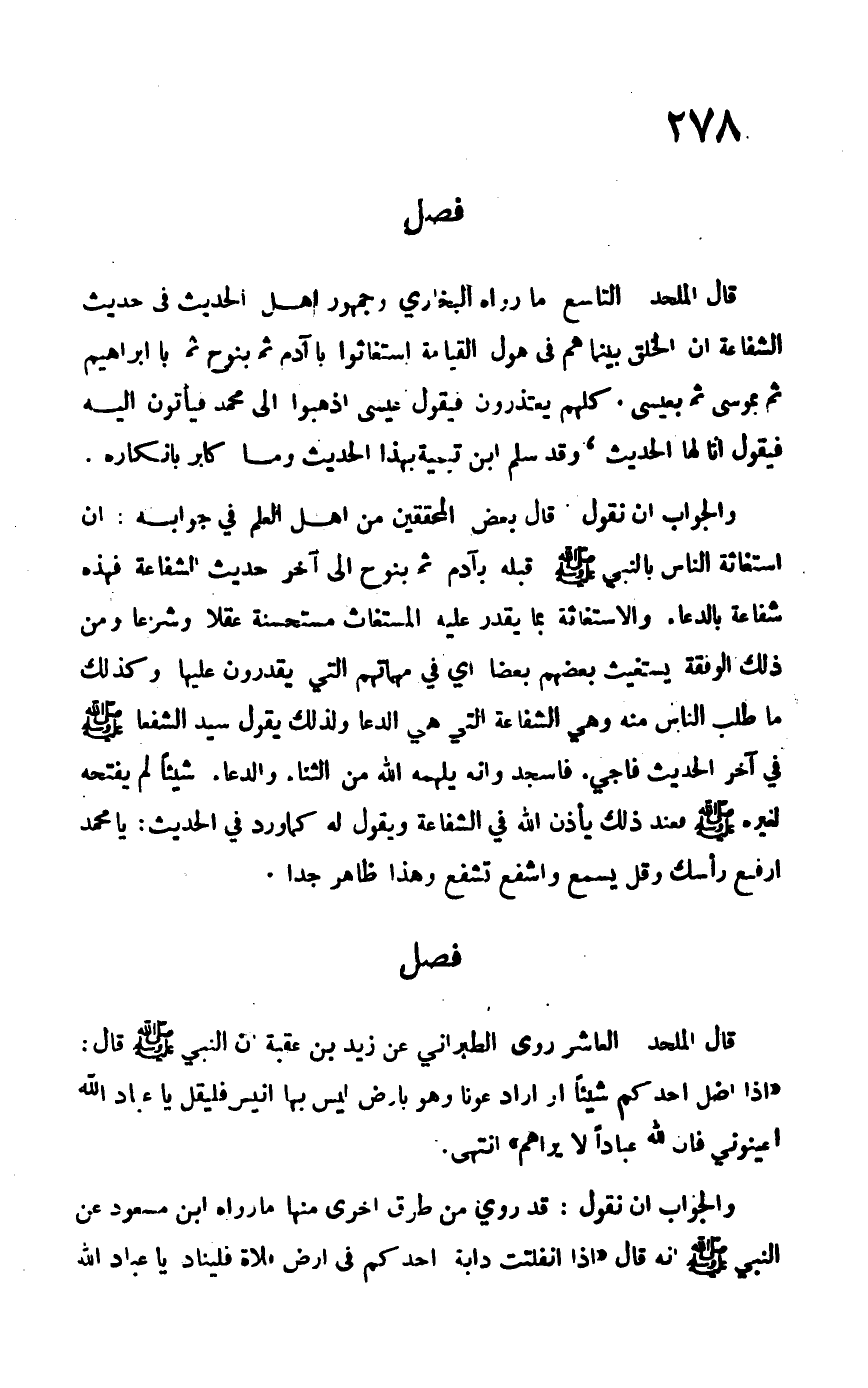 ٢٧٨
فصل
قال الملحد التاسع ما رواه البخاري وجمهور اهل الحديث فى حديث
الشفاعة ان الخلق بينما هم فى هول القيامة استغاثوا با آدم ثم بنوح ثم با ابراهيم
ثم بموسى ثم بعيسى . كلهم يعتذرون فيقول عيسى اذهبوا الى محمد فيأتون اليه
فيقول انا لها الحديث ، وقد سلم ابن تيمية بهذا الحديث وما كابر بانكاره .
والجواب ان نقول قال بعض المحققين من اهل العلم في جوابه : ان
استغاثة الناس بالنبي ﷺ قبله بآدم ثم بنوح الى آخر حديث الشفاعة فهذه
شفاعة بالدعاء والاستغاثة بما يقدر عليه المستغاث مستحسنة عقلا وشرعا ومن
ذلك الوفقة يستغيث بعضهم بعضا اي في مهاتهم التي يقدرون عليها وكذلك
ما طلب الناس منه وهي الشفاعة التي هي الدعا ولذلك يقول سيد الشفعا ﷺ
في آخر الحديث فاجيء فاسجد وانه يلهمه الله من الثناء والدعاء شيئاً لم يفتحه
لغيره ﷺ فعند ذلك يأذن الله في الشفاعة ويقول له كما ورد في الحديث : يا محمد
ارفع رأسك وقل يسمع واشفع تشفع وهذا ظاهر جدا .
فصل
قال الملحد العاشر روى الطبراني عن زيد بن عقبة ان النبي ﷺ قال :
«اذا اضل احدكم شيئاً او اراد عونا وهو بارض ليس بها انيس فليقل يا عباد الله
اعينوني فان لله عباداً لا يراهم» انتهى .
والجواب ان نقول : قد روي من طرق اخرى منها ما رواه ابن مسعود عن
النبي ﷺ انه قال «اذا انفلتت دابة احدكم فى ارض فلاة فليناد يا عباد الله